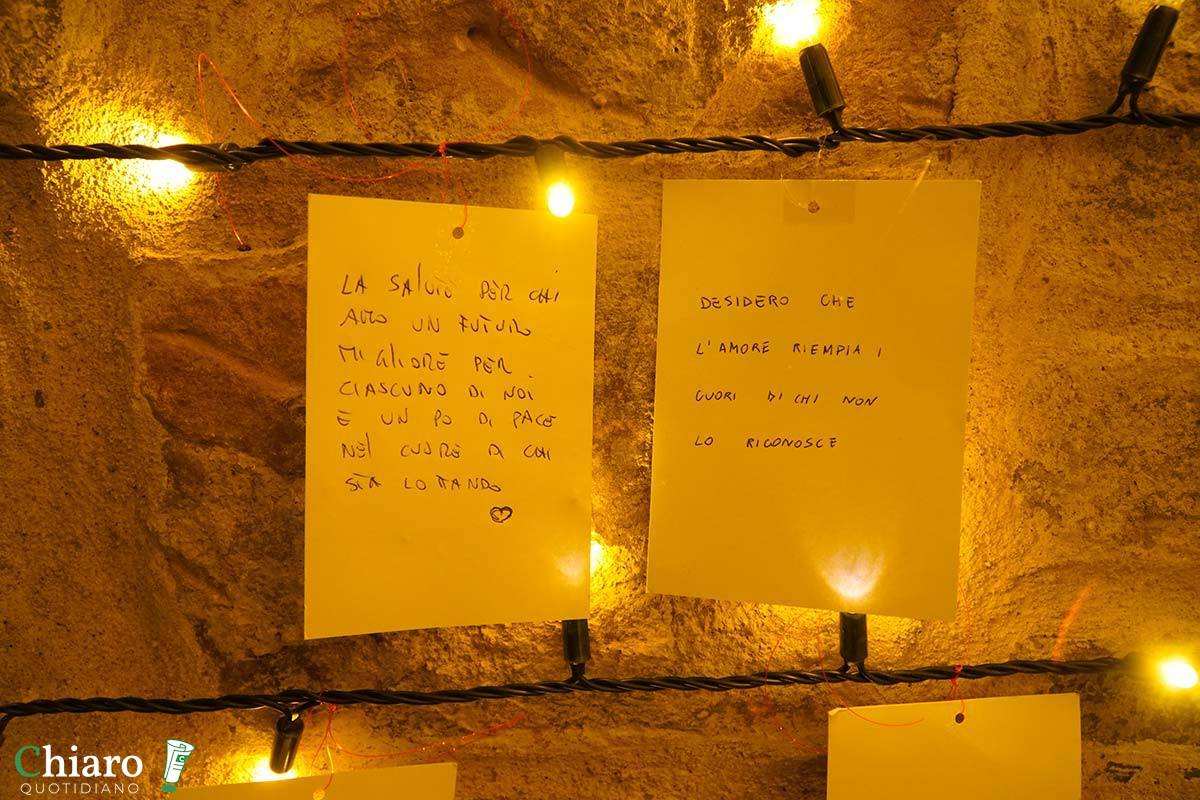 LA SALUTE PER CHI
AMO UN FUTURO
MIGLIORE PER
CIASCUNO DI NOI
E UN PO DI PACE
NEL CUORE DI CHI
STA LOTTANDO
DESIDERO CHE
L'AMORE RIEMPIA I
CUORI DI CHI NON
LO RICONOSCE
Chiaro
QUOTIDIANO